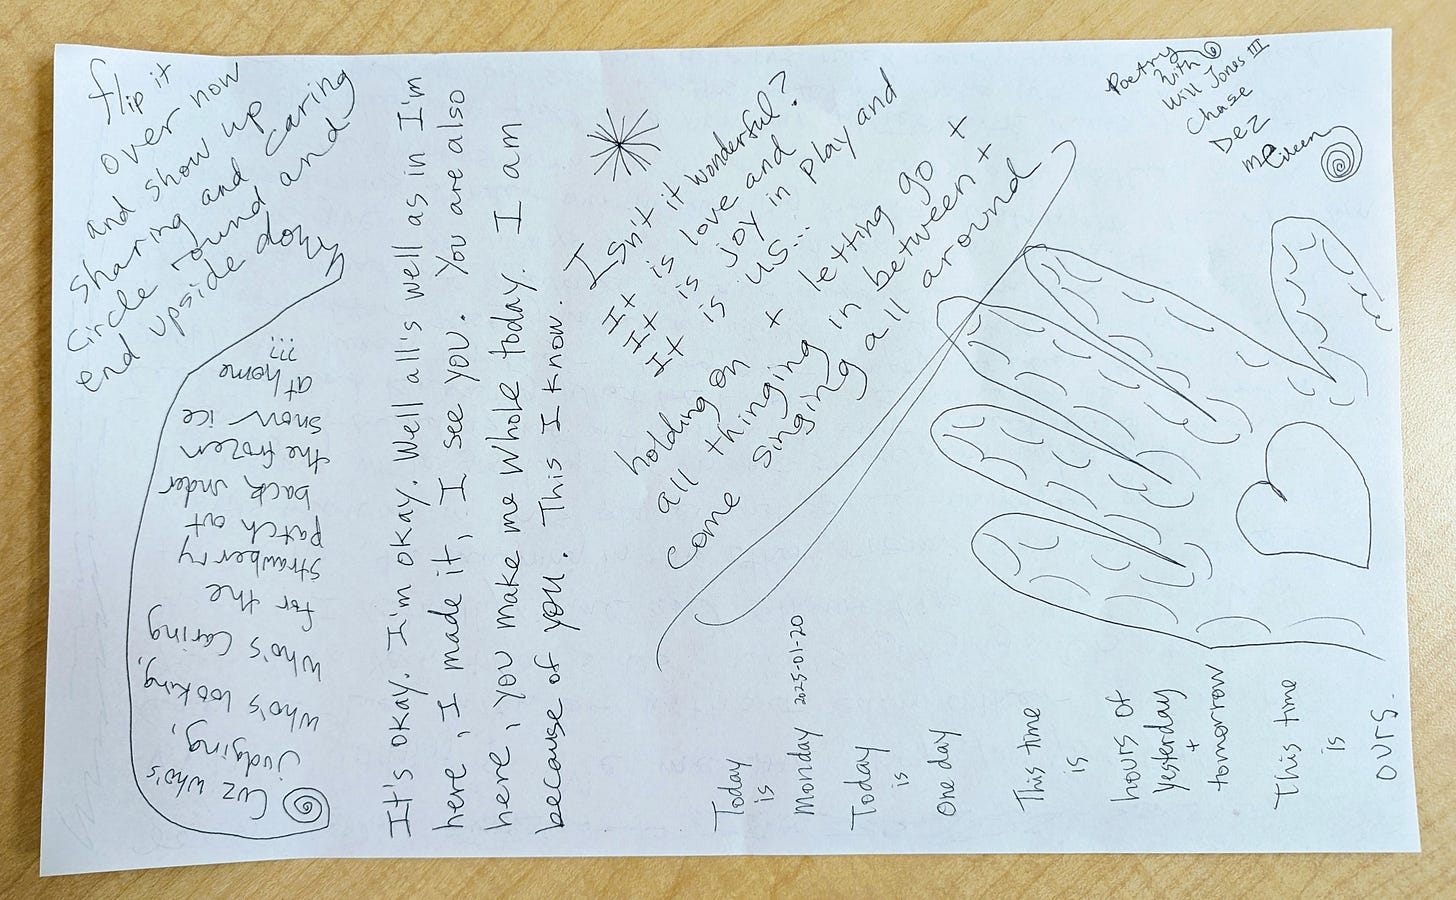 flip it
over now
and show up
sharing and caring
circle round and
end upside down
Cuz who's
judging,
who's looking,
who's caring
for the
strawberry
patch out
back, under
the frozen
snow ice
at home
???
It's okay. I'm okay. Well all's well as in I'm
here, I made it, I see you. You are also
here, you make me whole today. I am
because of you. This I know.
Isn't it wonderful?
It is love and
It is joy in play and
It is us...
holding on + letting go +
all thinging in between +
come singing all around
Today
is
Monday 2025-01-20
Today
is
one day
This time
is
hours of
yesterday
+
tomorrow
This time
is
ours.
Poetry
with
Will Jones III
Chase
Dez
me Eileen